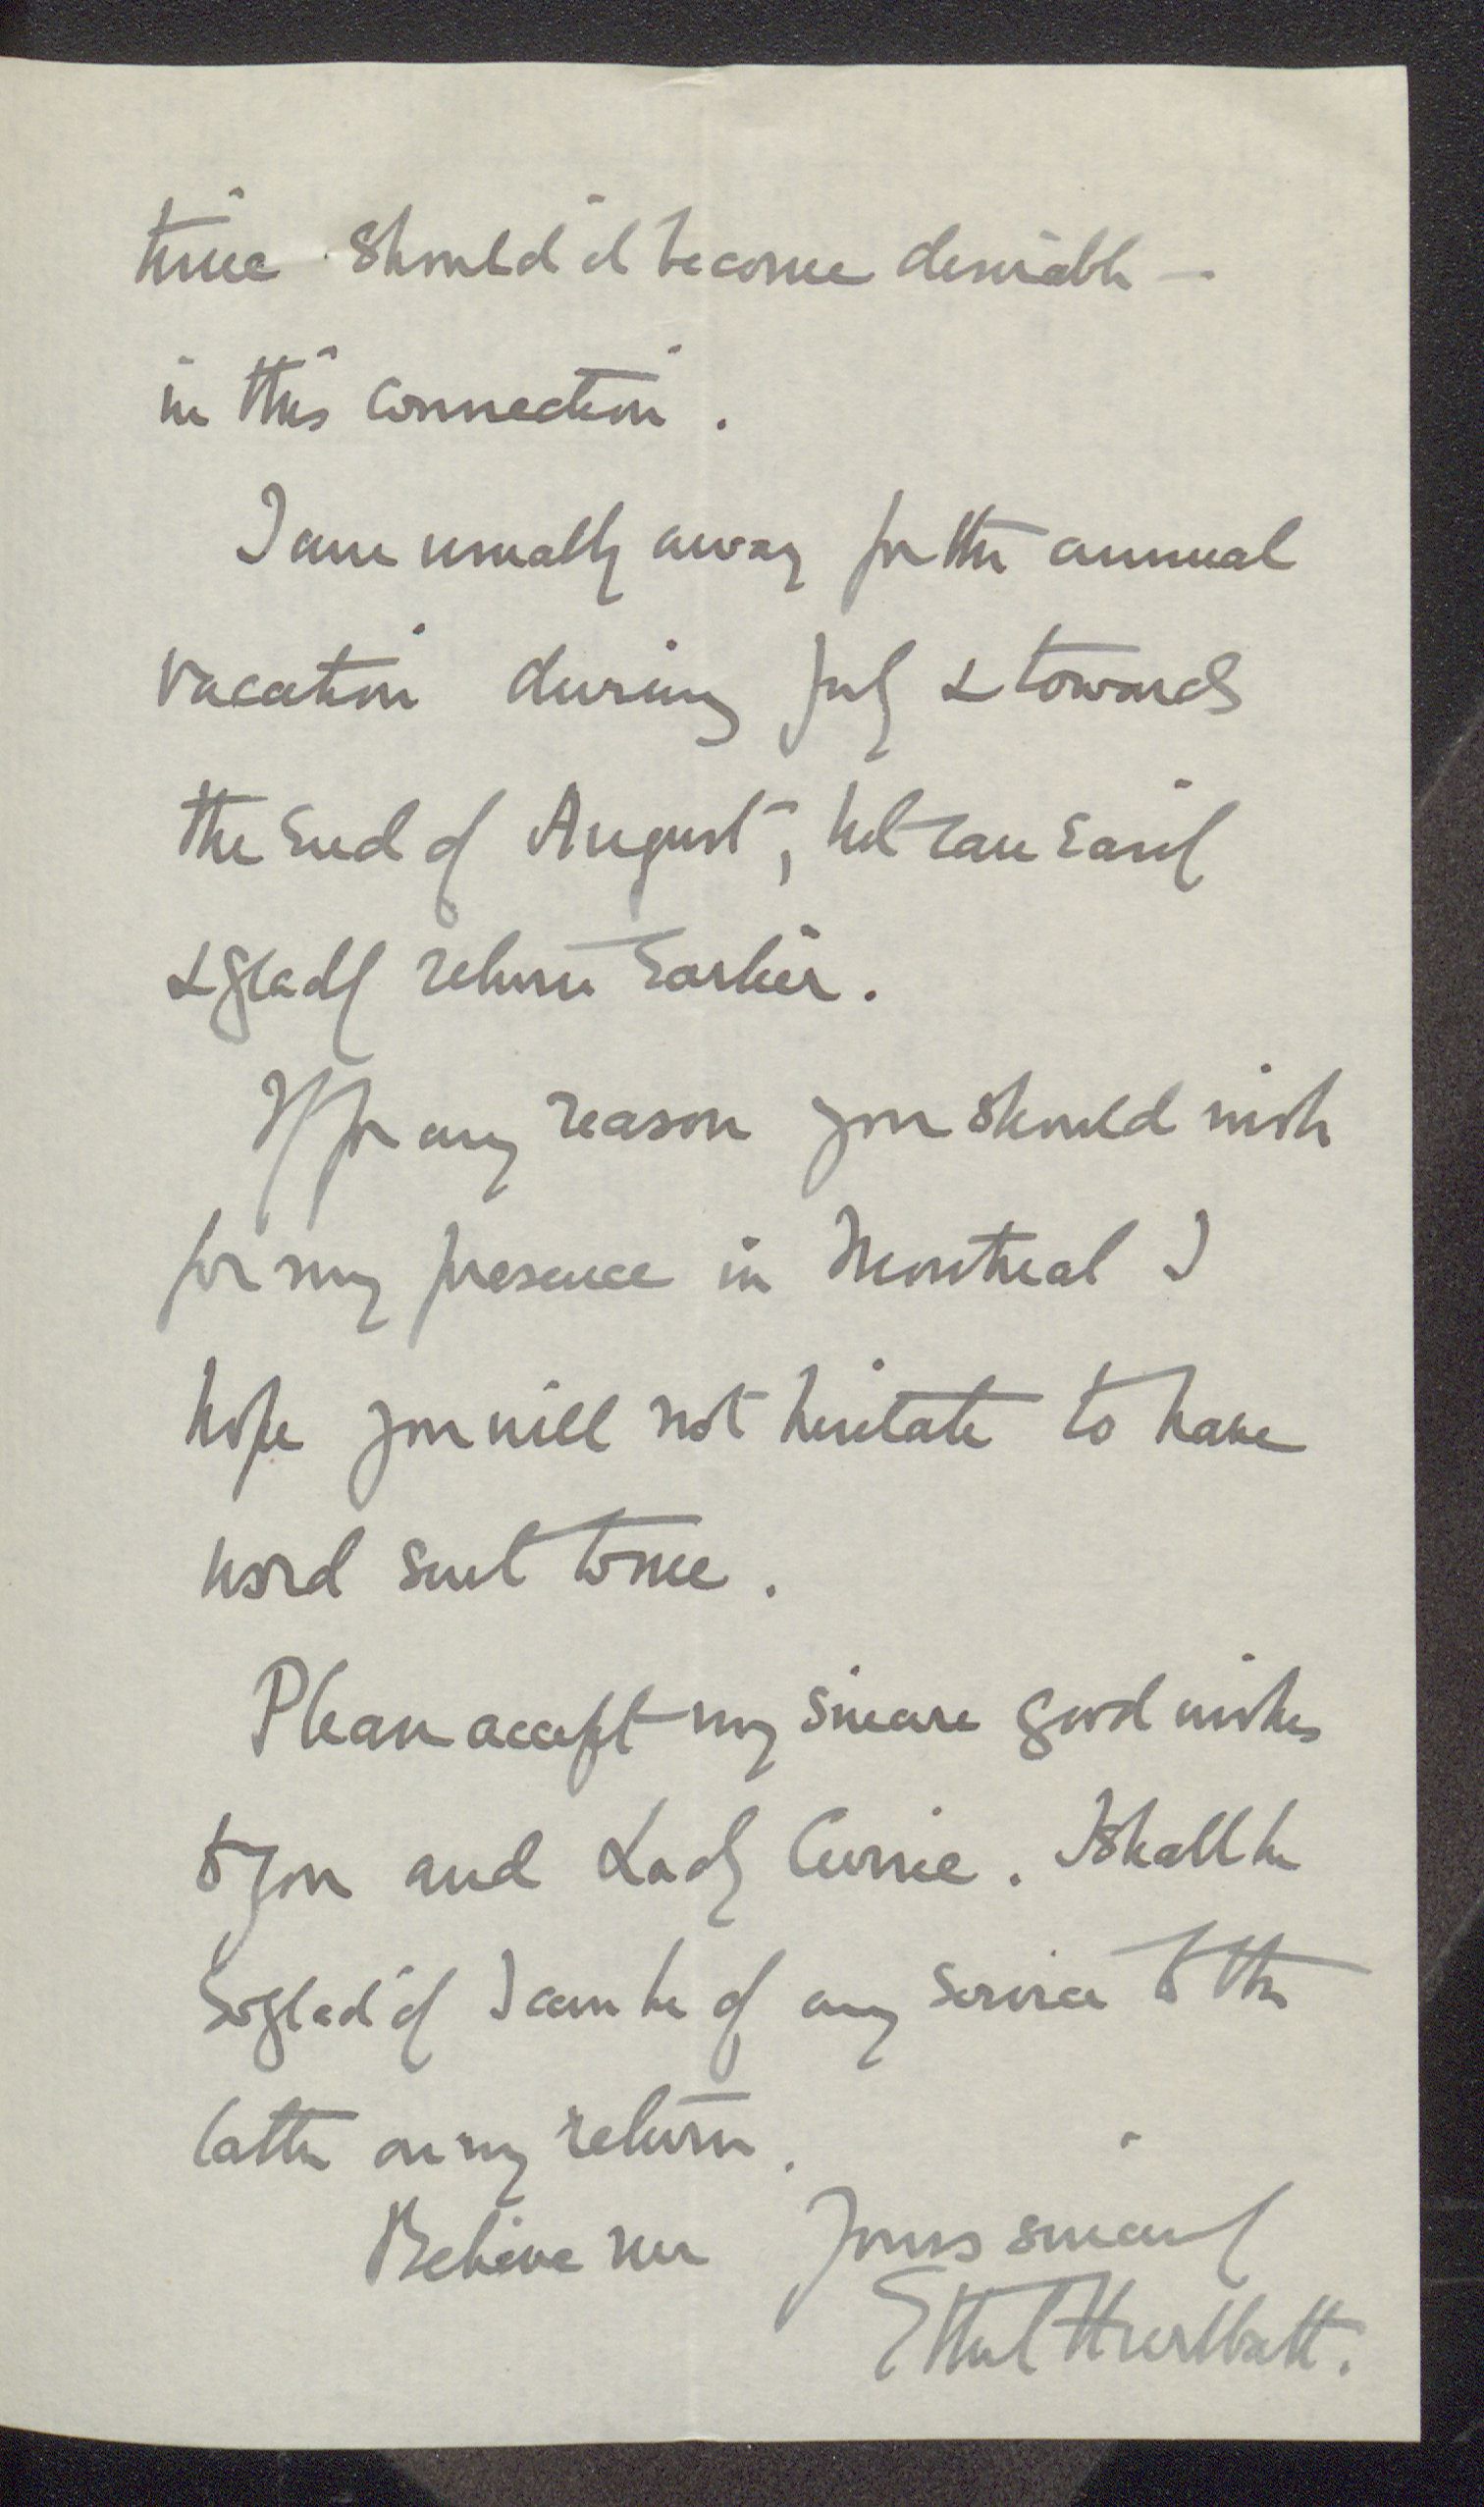 time should it become desirable —
in this connection.
I am usually away for the annual
vacation during July & towards
the end of August, but can easily
& gladly return earlier.
If for any reason you should wish
for my presence in Montreal I
hope you will not hesitate to have
word sent to me.
Please accept my sincere good wishes
to you and Lady Currie. I shall be
so glad if I can be of any service to the
latter on my return.
Believe me Yours sincerely
Ethel Hurlbatt.